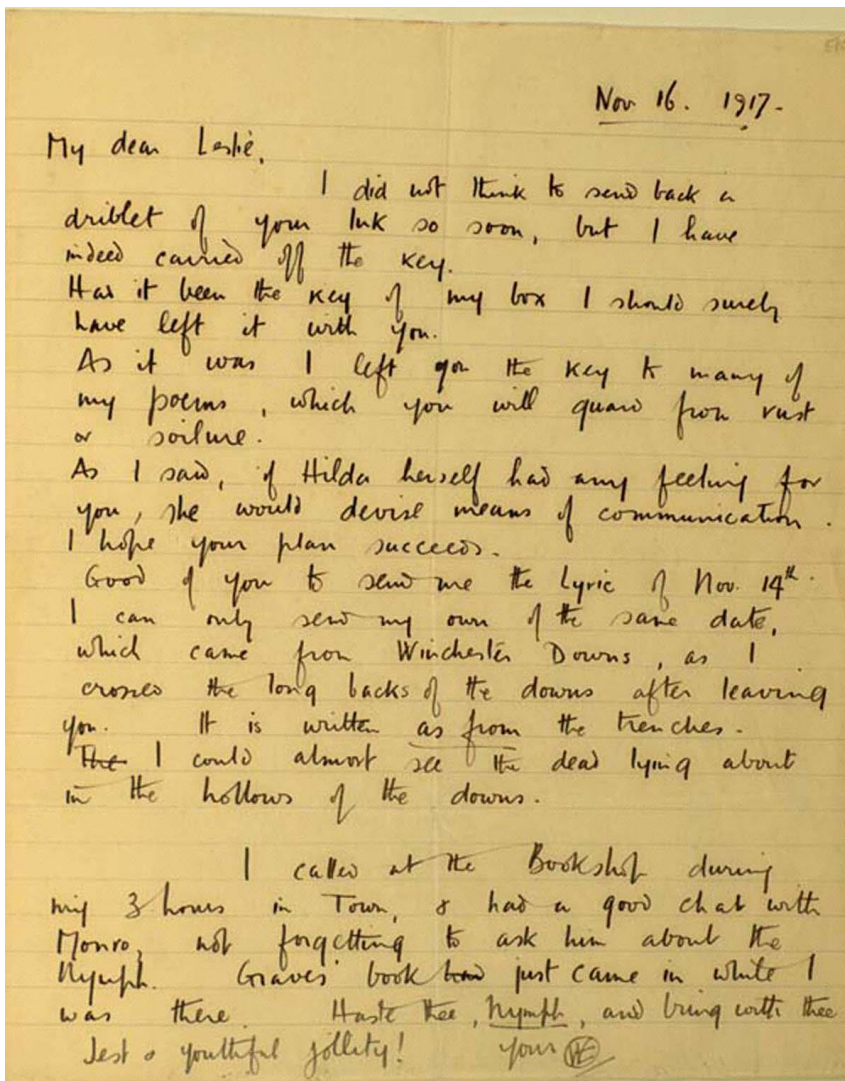 Nov 16. 1917.
My dear Leslie,
I did not think to send back a
driblet of your Ink so soon, but I have
indeed carried off the key.
Had it been the key of my box I should surely
have left it with you.
As it was I left you the key to many of
my poems, which you will guard from rust
or soilure.
As I said, if Hilda herself had any feeling for
you, she would devise means of communication.
I hope your plan succeeds.
Good of you to send me the Lyric of Nov. 14th.
I can only send my own of the same date,
which came from Winchester Downs, as I
crossed the long backs of the downs after leaving
you. It is written as from the trenches.
The I could almost see the dead lying about
in the hollows of the downs.
I called at the Bookshop during
my 3 hours in Town, & had a good chat with
Monro, not forgetting to ask him about the
Nymph. Graves' book had just came in while I
was there. Haste thee, Nymph, and bring with thee
Jest & youthful jollity! your